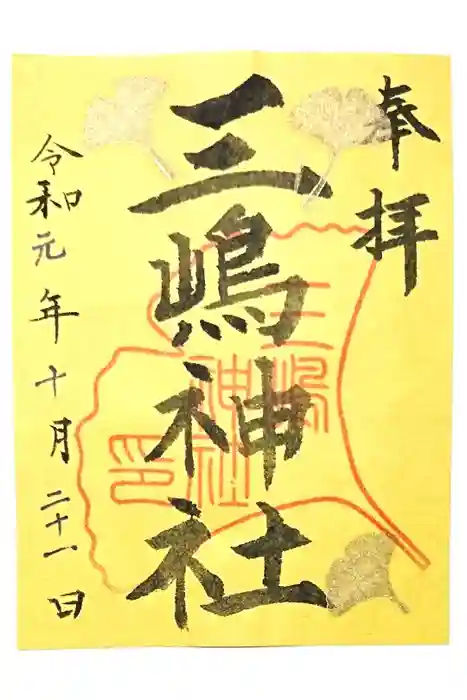 奉拝
三嶋神社
三嶋神社印
令和元年十月二十一日